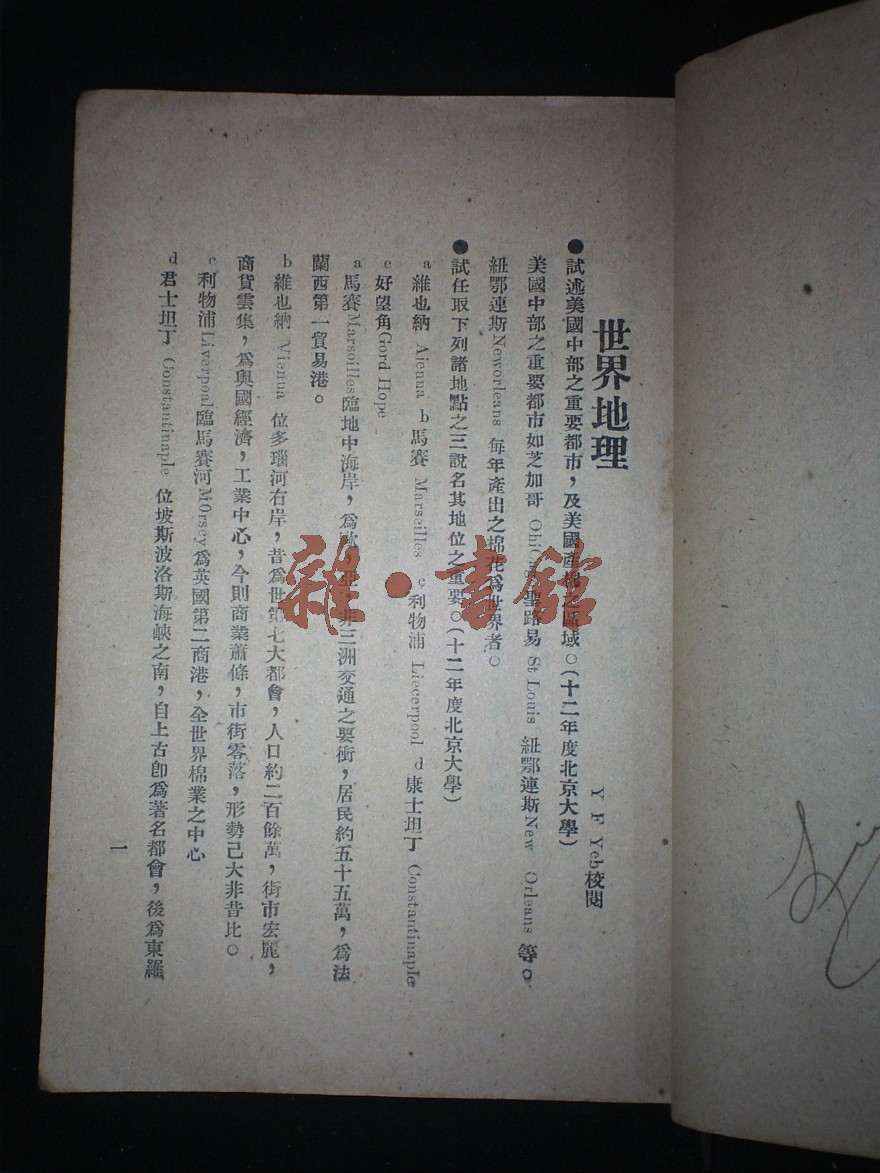 世界地理
Y F Yeh校閱
●試述美國中部之重要都市，及美國產棉之區域。(十二年度北京大學)
美國中部之重要都市如芝加哥 聖路易 St Louis 紐鄂連斯New Orleans 等。
紐鄂連斯Neworleans 每年產出之棉花爲世界者。
●試任取下列諸地點之三說名其地位之重要。(十二年度北京大學)
a 維也納 Aienna b 馬賽 Marseilles c 利物浦 Liecerpool d 康士坦丁 Constantinaple
e 好望角Gord Hope
a 馬賽Marsoilles臨地中海岸，爲歐，亞，非三洲交通之要衝，居民約五十五萬，爲法
蘭西第一貿易港。
b 維也納 Vienua 位多瑙河右岸，昔爲世第七大都會，人口約二百餘萬，街市宏麗，
商貨雲集，爲奧國經濟，工業中心，今則商業蕭條，市街零落，形勢己大非昔比。
c 利物浦Liverpoal臨馬賽河M0rsey爲英國第二商港，全世界棉業之中心
d 君士坦丁 Constantinaple 位坡斯波洛斯海峽之南，自上古卽爲著名都會，後爲東羅
一
雜·書館